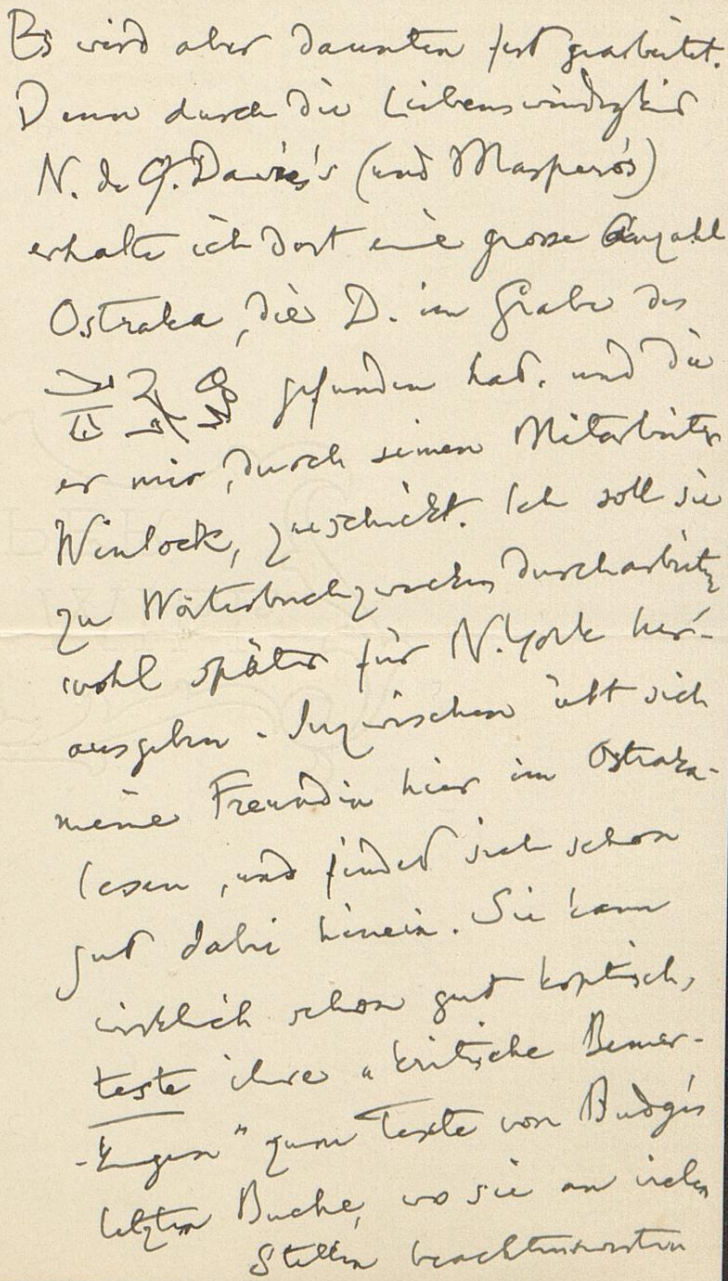 Es wird aber daunten fest gearbeitet.
Denn durch die Liebenswürdigkeit
N. de G. Davies's (und Maspero's)
erhalte ich dort eine grosse Anzahl
Ostraka, die D. im Grabe des
gefunden hat, und die
er mir, durch seinen Mitarbeiter
Winlock, zuschickt. Ich soll sie
zu Wörterbuchzwecken durcharbeiten,
wohl später für N.York her-
ausgeben. Inzwischen übt sich
meine Freundin hier im Ostraka-
lesen, und findet sich schon
gut dabei hinein. Sie kann
wirklich schon gut koptisch,
teste ihre „kritische Bemer-
-kungen" zum Texte von Budge's
letztem Buche, wo sie an vielen
Stellen beachtenswerten